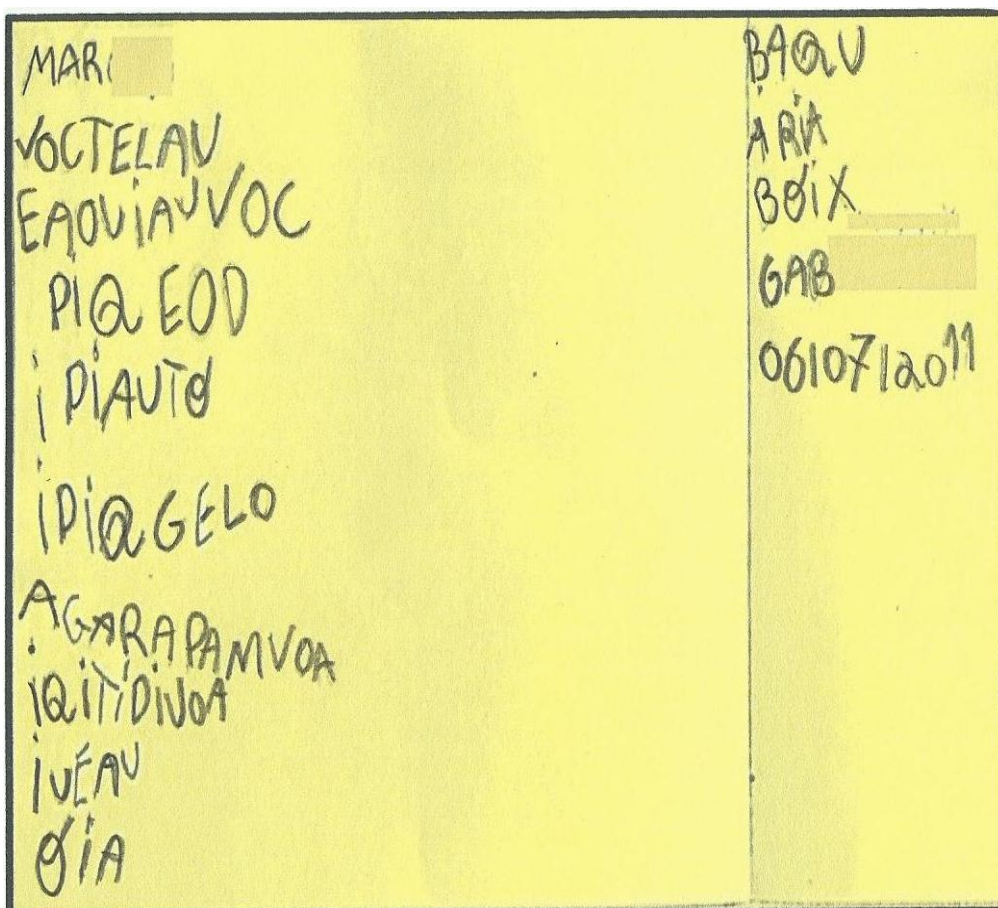 MARI
VOCTELAU
EAQUIAUVOC
PIQ EOD
I PIAUTO
IPIQGELO
AGARAPAMVOA
IQITIDIVOA
IVEAU
OIA
BAQU
ARIA
BOIX
GAB
06/07/2011